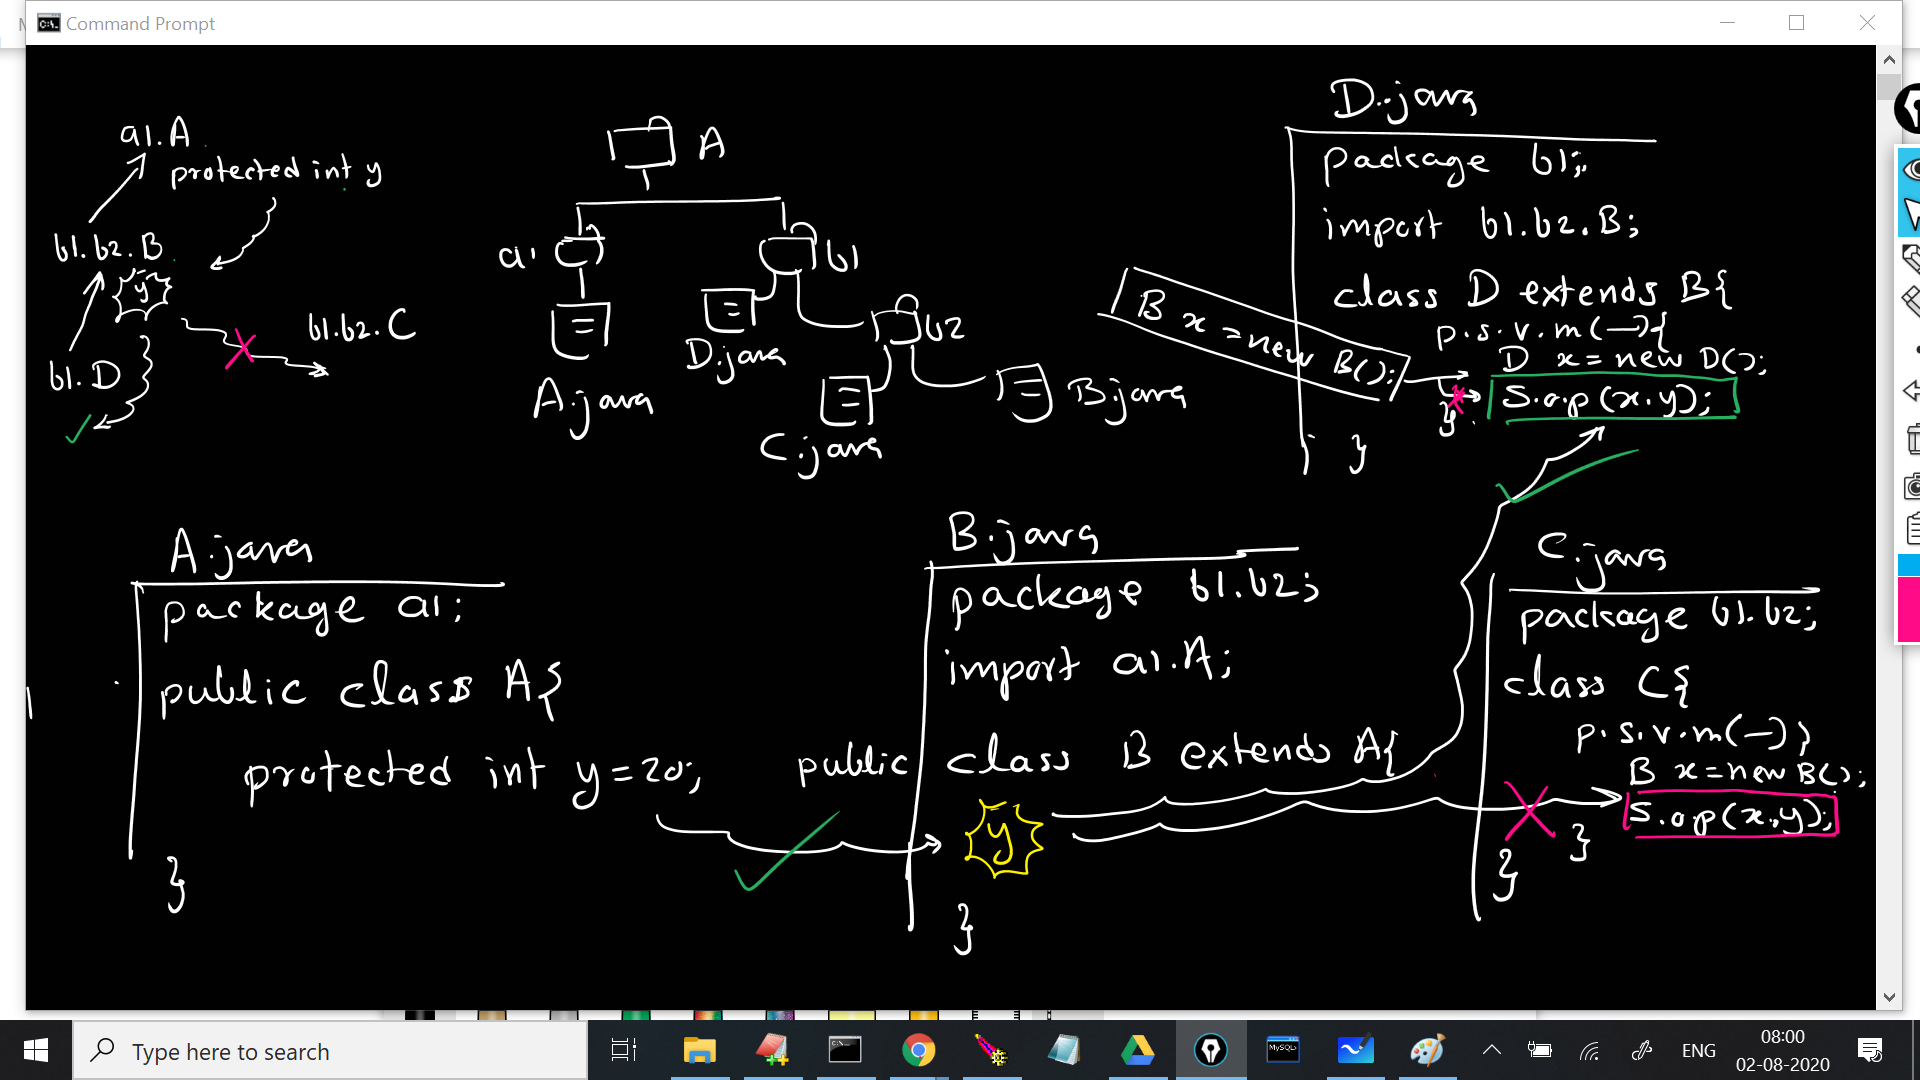 Command Prompt
a1.A
protected int y
b1.b2.B
y
b1.b2.C
b1.D
A
a1
b1
b2
A.java
D.java
C.java
B.java
D.java
package b1;
import b1.b2.B;
class D extends B{
p.s.v.m(—){
D x = new D();
B x = new B();
S.o.p(x.y);
}
}
A.java
package a1;
public class A{
protected int y=20;
}
B.java
package b1.b2;
import a1.A;
public class B extends A{
y
}
C.java
package b1.b2;
class C{
p.s.v.m(—)}
B x = new B();
S.o.p(x.y);
}
}
Type here to search
MySQL
ENG
08:00
02-08-2020